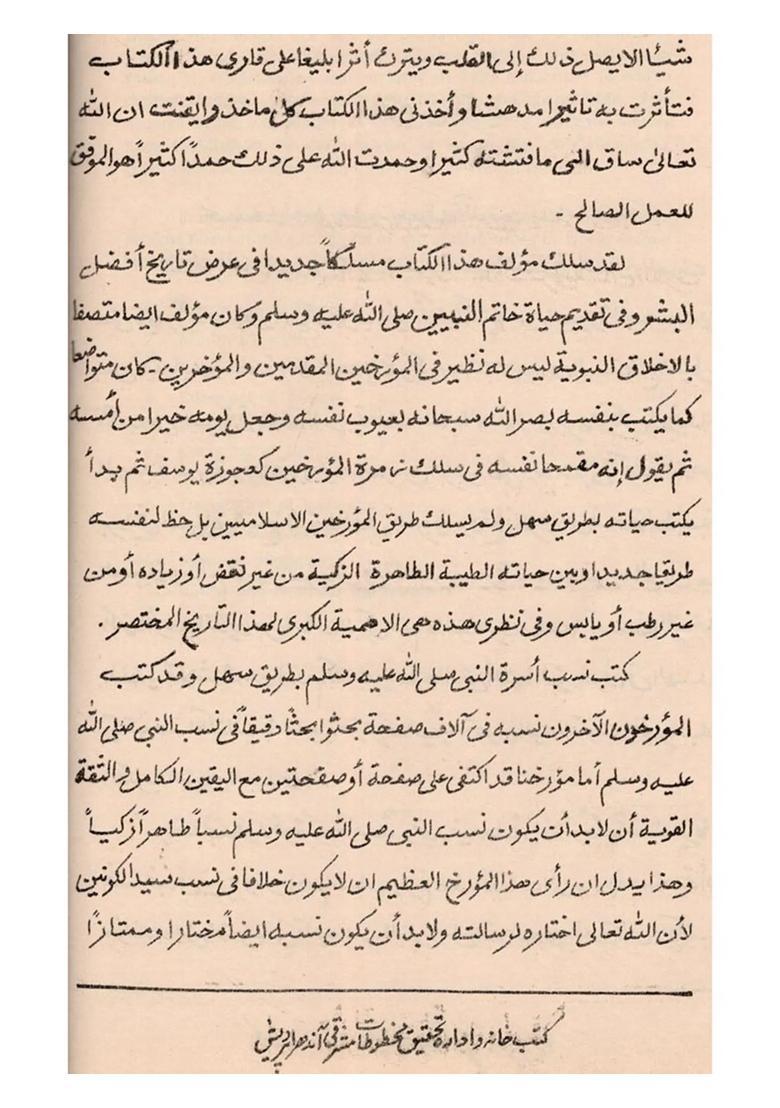 شيئا الا يصل ذلك إلى القلب ويترك أثرا بليغا على قارى هذا الكتاب
فتأثرت به تاثيرا مدهشا وأخذنى هذا الكتاب كل ماخذ وايقنت ان الله
تعالى ساق الى مافتشته كثيرا وحمدت الله على ذلك حمدًا كثيراً هو الموفق
للعمل الصالح -
لقد سلك مؤلف هذا الكتاب مسلكاً جديدا فى عرض تاريخ أفضل
البشر وفى تقديم حياة خاتم النبيين صلى الله عليه وسلم وكان مؤلف ايضا متصفا
بالاخلاق النبوية ليس له نظير فى المؤرخين المقدمين والمؤخرين - كان متواضعا
كما يكتب بنفسه بصر الله سبحانه بعيوب نفسه وجعل يومه خيرا من أمسه
ثم يقول إنه مقمحا نفسه فى سلك زمرة المؤرخين كعجوزة يوسف ثم بدأ
يكتب حياته بطريق سهل ولم يسلك طريق المؤرخين الاسلاميين بل حظ لنفسه
طريقا جديدا وبين حياته الطيبة الطاهرة الزكية من غير نقض أو زياده أو من
غير رطب أو يابس وفى نظرى هذه هى الاهمية الكبرى لهذا التاريخ المختصر .
كتب نسب أسرة النبى صلى الله عليه وسلم بطريق سهل وقد كتب
المؤرخون الآخرون نسبه فى آلاف صفحة بحثوا بحثًا دقيقاً فى نسب النبى صلى الله
عليه وسلم أما مؤرخنا قد اكتفى على صفحة أو صفحتين مع اليقين الكامل والثقة
القوية أن لابد أن يكون نسب النبى صلى الله عليه وسلم نسباً طاهراً زكياً
وهذا يدل ان رأى هذا المؤرخ العظيم ان لا يكون خلافا فى نسب سيد الكونين
لأن الله تعالى اختاره لرسالته ولابد أن يكون نسبه ايضاً مختارا وممتازًا
كتب خانه و اداره تحقيق مخطوطات مشرقى آندهرا پرديش